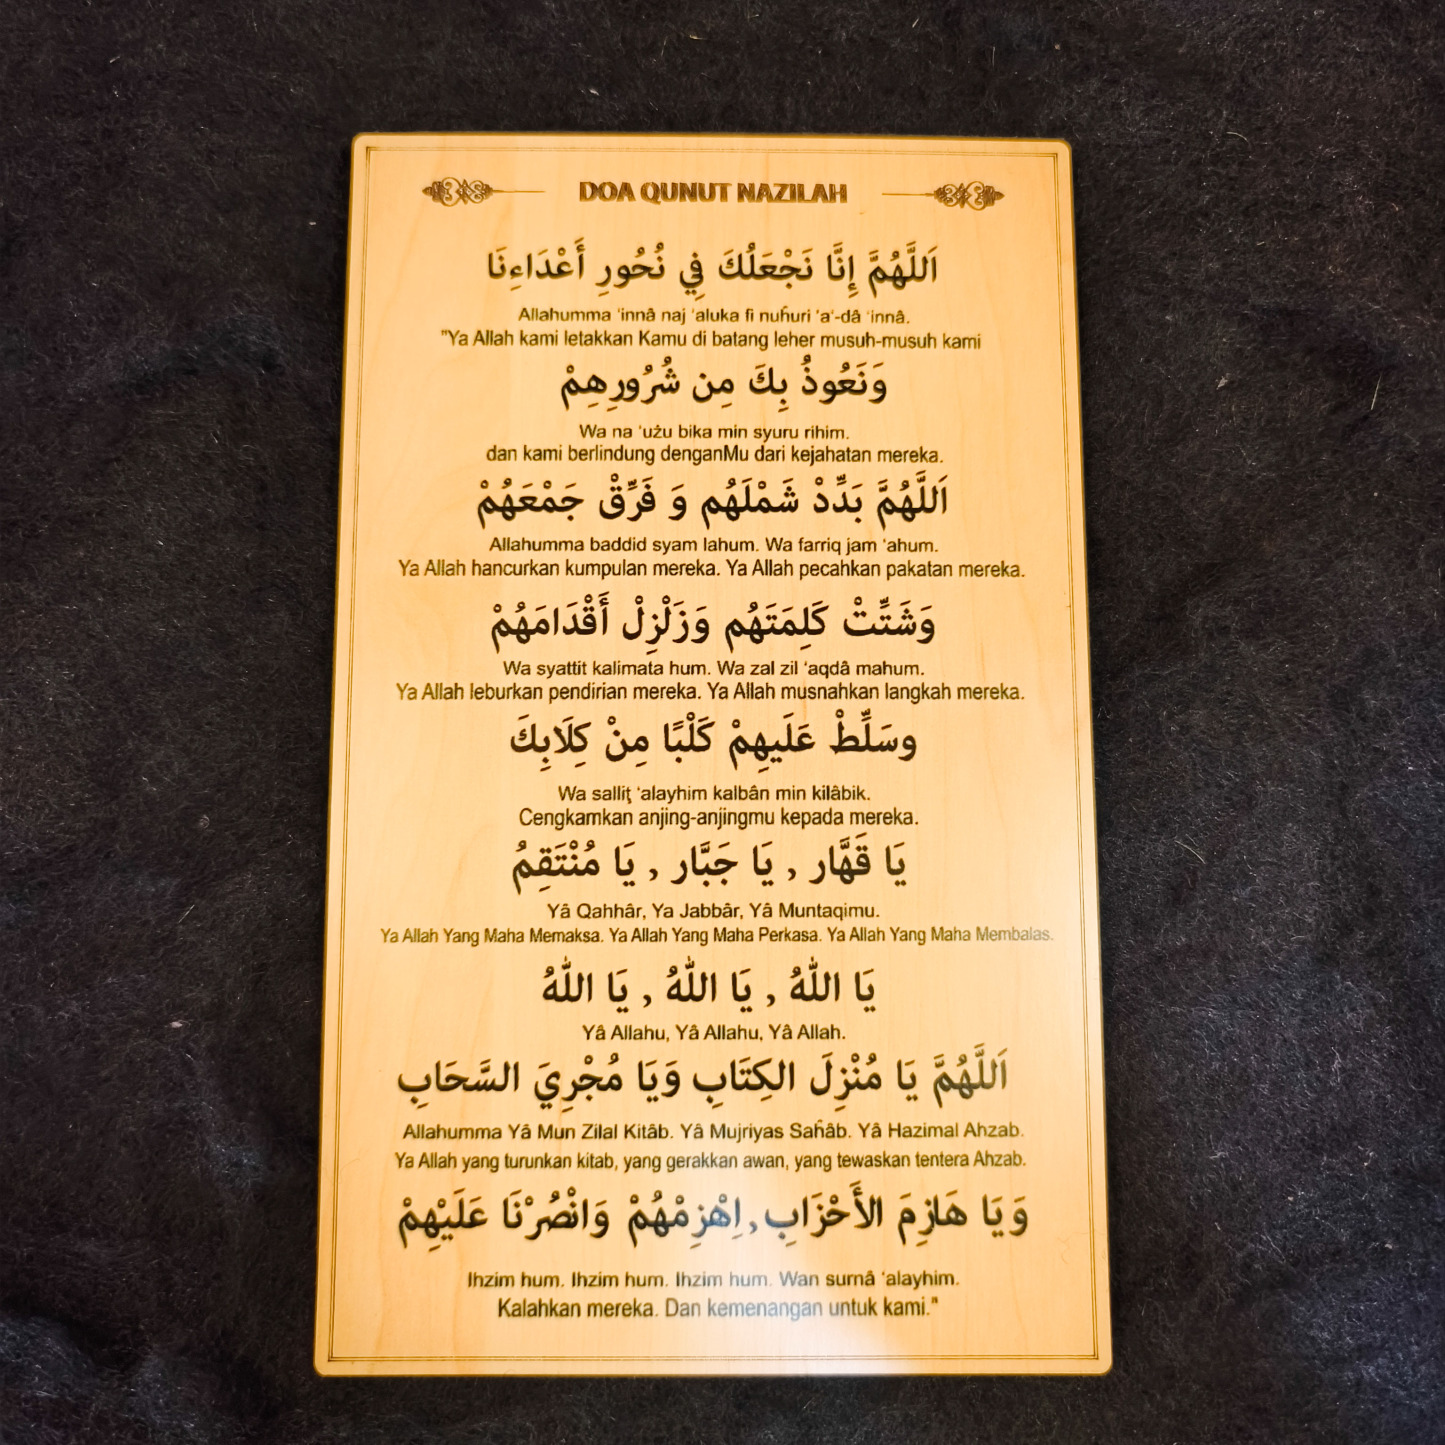 DOA QUNUT NAZILAH
اَللَّهُمَّ إِنَّا نَجْعَلُكَ فِي نُحُورِ أَعْدَاءِنَا
Allahumma 'innâ naj 'aluka fi nuĥuri 'a'-dâ 'innâ.
"Ya Allah kami letakkan Kamu di batang leher musuh-musuh kami
وَنَعُوذُ بِكَ مِن شُرُورِهِمْ
Wa na 'użu bika min syuru rihim.
dan kami berlindung denganMu dari kejahatan mereka.
اَللَّهُمَّ بَدِّدْ شَمْلَهُم وَ فَرِّقْ جَمْعَهُمْ
Allahumma baddid syam lahum. Wa farriq jam 'ahum.
Ya Allah hancurkan kumpulan mereka. Ya Allah pecahkan pakatan mereka.
وَشَتِّتْ كَلِمَتَهُم وَزَلْزِلْ أَقْدَامَهُمْ
Wa syattit kalimata hum. Wa zal zil 'aqdâ mahum.
Ya Allah leburkan pendirian mereka. Ya Allah musnahkan langkah mereka.
وسَلِّطْ عَلَيهِمْ كَلْبًا مِنْ كِلَابِكَ
Wa salliţ 'alayhim kalbân min kilâbik.
Cengkamkan anjing-anjingmu kepada mereka.
يَا قَهَّار , يَا جَبَّار , يَا مُنْتَقِمُ
Yâ Qahhâr, Ya Jabbâr, Yâ Muntaqimu.
Ya Allah Yang Maha Memaksa. Ya Allah Yang Maha Perkasa. Ya Allah Yang Maha Membalas.
يَا اللهُ , يَا اللهُ , يَا اللهُ
Yâ Allahu, Yâ Allahu, Yâ Allah.
اَللَّهُمَّ يَا مُنْزِلَ الكِتَابِ وَيَا مُجْرِيَ السَّحَابِ
Allahumma Yâ Mun Zilal Kitâb. Yâ Mujriyas Saĥâb. Yâ Hazimal Ahzab.
Ya Allah yang turunkan kitab, yang gerakkan awan, yang tewaskan tentera Ahzab.
وَيَا هَازِمَ الأَحْزَابِ , اِهْزِمْهُمْ وَانْصُرْنَا عَلَيْهِمْ
Ihzim hum. Ihzim hum. Ihzim hum. Wan surnâ 'alayhim.
Kalahkan mereka. Dan kemenangan untuk kami."